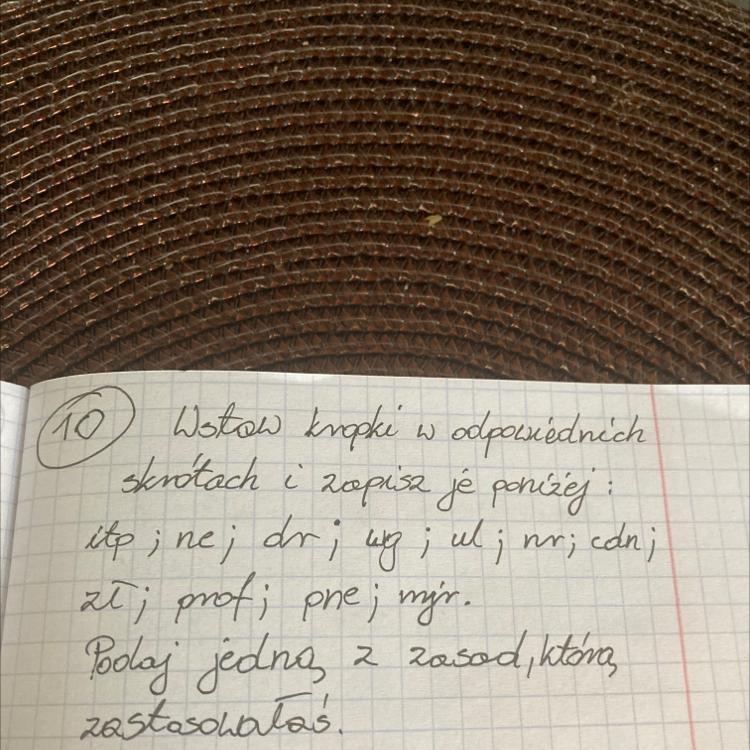 10 Wstaw kropki w odpowiednich
skrótach i zapisz je poniżej:
itp; ne; dr; wg; ul; nr; cdn;
zł; prof; pne; mjr.
Podaj jedną z zasad, którą
zastosowałaś.